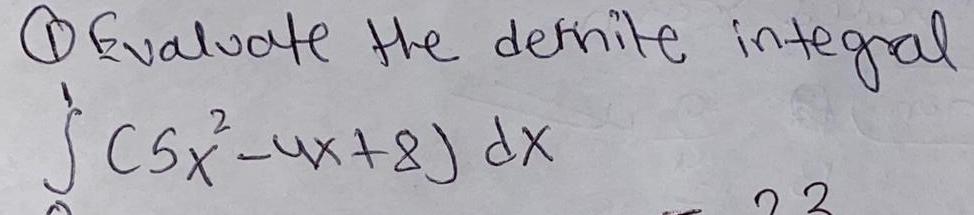 ① Evaluate the definite integral
∫₀¹ (5x² - 4x + 8) dx
= 23